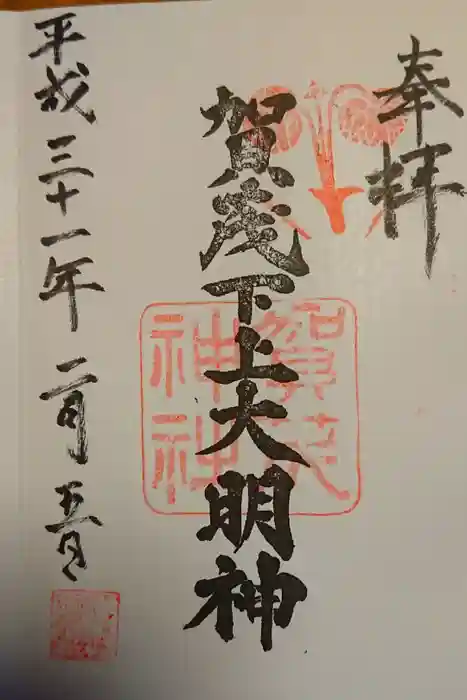 奉拝
賀茂下上大明神
賀茂
神社
平成三十一年二月五日